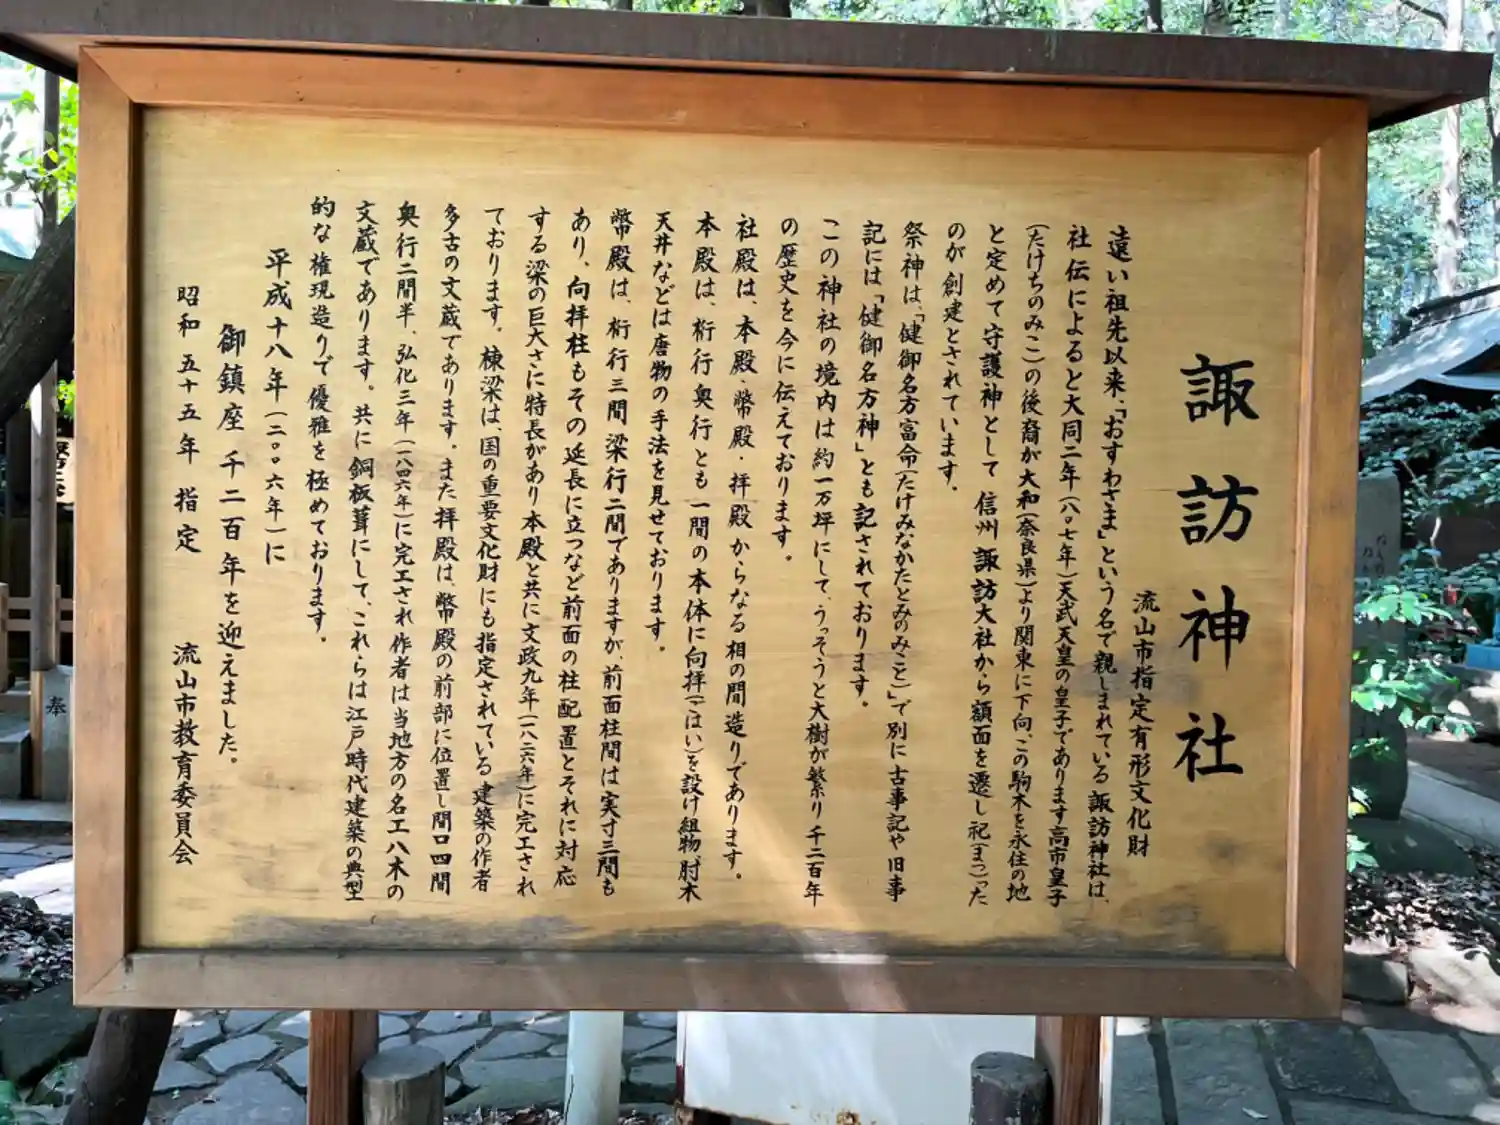 諏訪神社
流山市指定有形文化財
遠い祖先以来、「おすわさま」という名で親しまれている諏訪神社は、
社伝によると大同二年(八〇七年)天武天皇の皇子であります高市皇子
(たけちのみこ)の後裔が大和(奈良県)より関東に下向、この駒木を永住の地
と定めて守護神として 信州諏訪大社から額面を遷し祀(まつ)った
のが創建とされています。
祭神は、「健御名方富命(たけみなかたとみのみこと)」で別に古事記や旧事
記には「健御名方神」とも記されております。
この神社の境内は約一万坪にして、うっそうと大樹が繁り千二百年
の歴史を今に伝えております。
社殿は、本殿・幣殿・拝殿からなる相の間造りであります。
本殿は、桁行奥行とも一間の本体に向拝(ごはい)を設け組物、肘木
天井などは唐物の手法を見せております。
幣殿は、桁行三間梁行二間でありますが、前面柱間は実寸三間も
あり、向拝柱もその延長に立つなど前面の柱配置とそれに対応
する梁の巨大さに特長があり本殿と共に文政九年(一八二六年)に完工され
ております。棟梁は、国の重要文化財にも指定されている建築の作者
多古の文蔵であります。また拝殿は、幣殿の前部に位置し間口四間
奥行二間半、弘化三年(一八四六年)に完工され作者は当地方の名工八木の
文蔵であります。共に銅板葺にして、これらは江戸時代建築の典型
的な権現造りで優雅を極めております。
平成十八年(二〇〇六年)に
御鎮座千二百年を迎えました。
昭和五十五年 指定
流山市教育委員会
奉